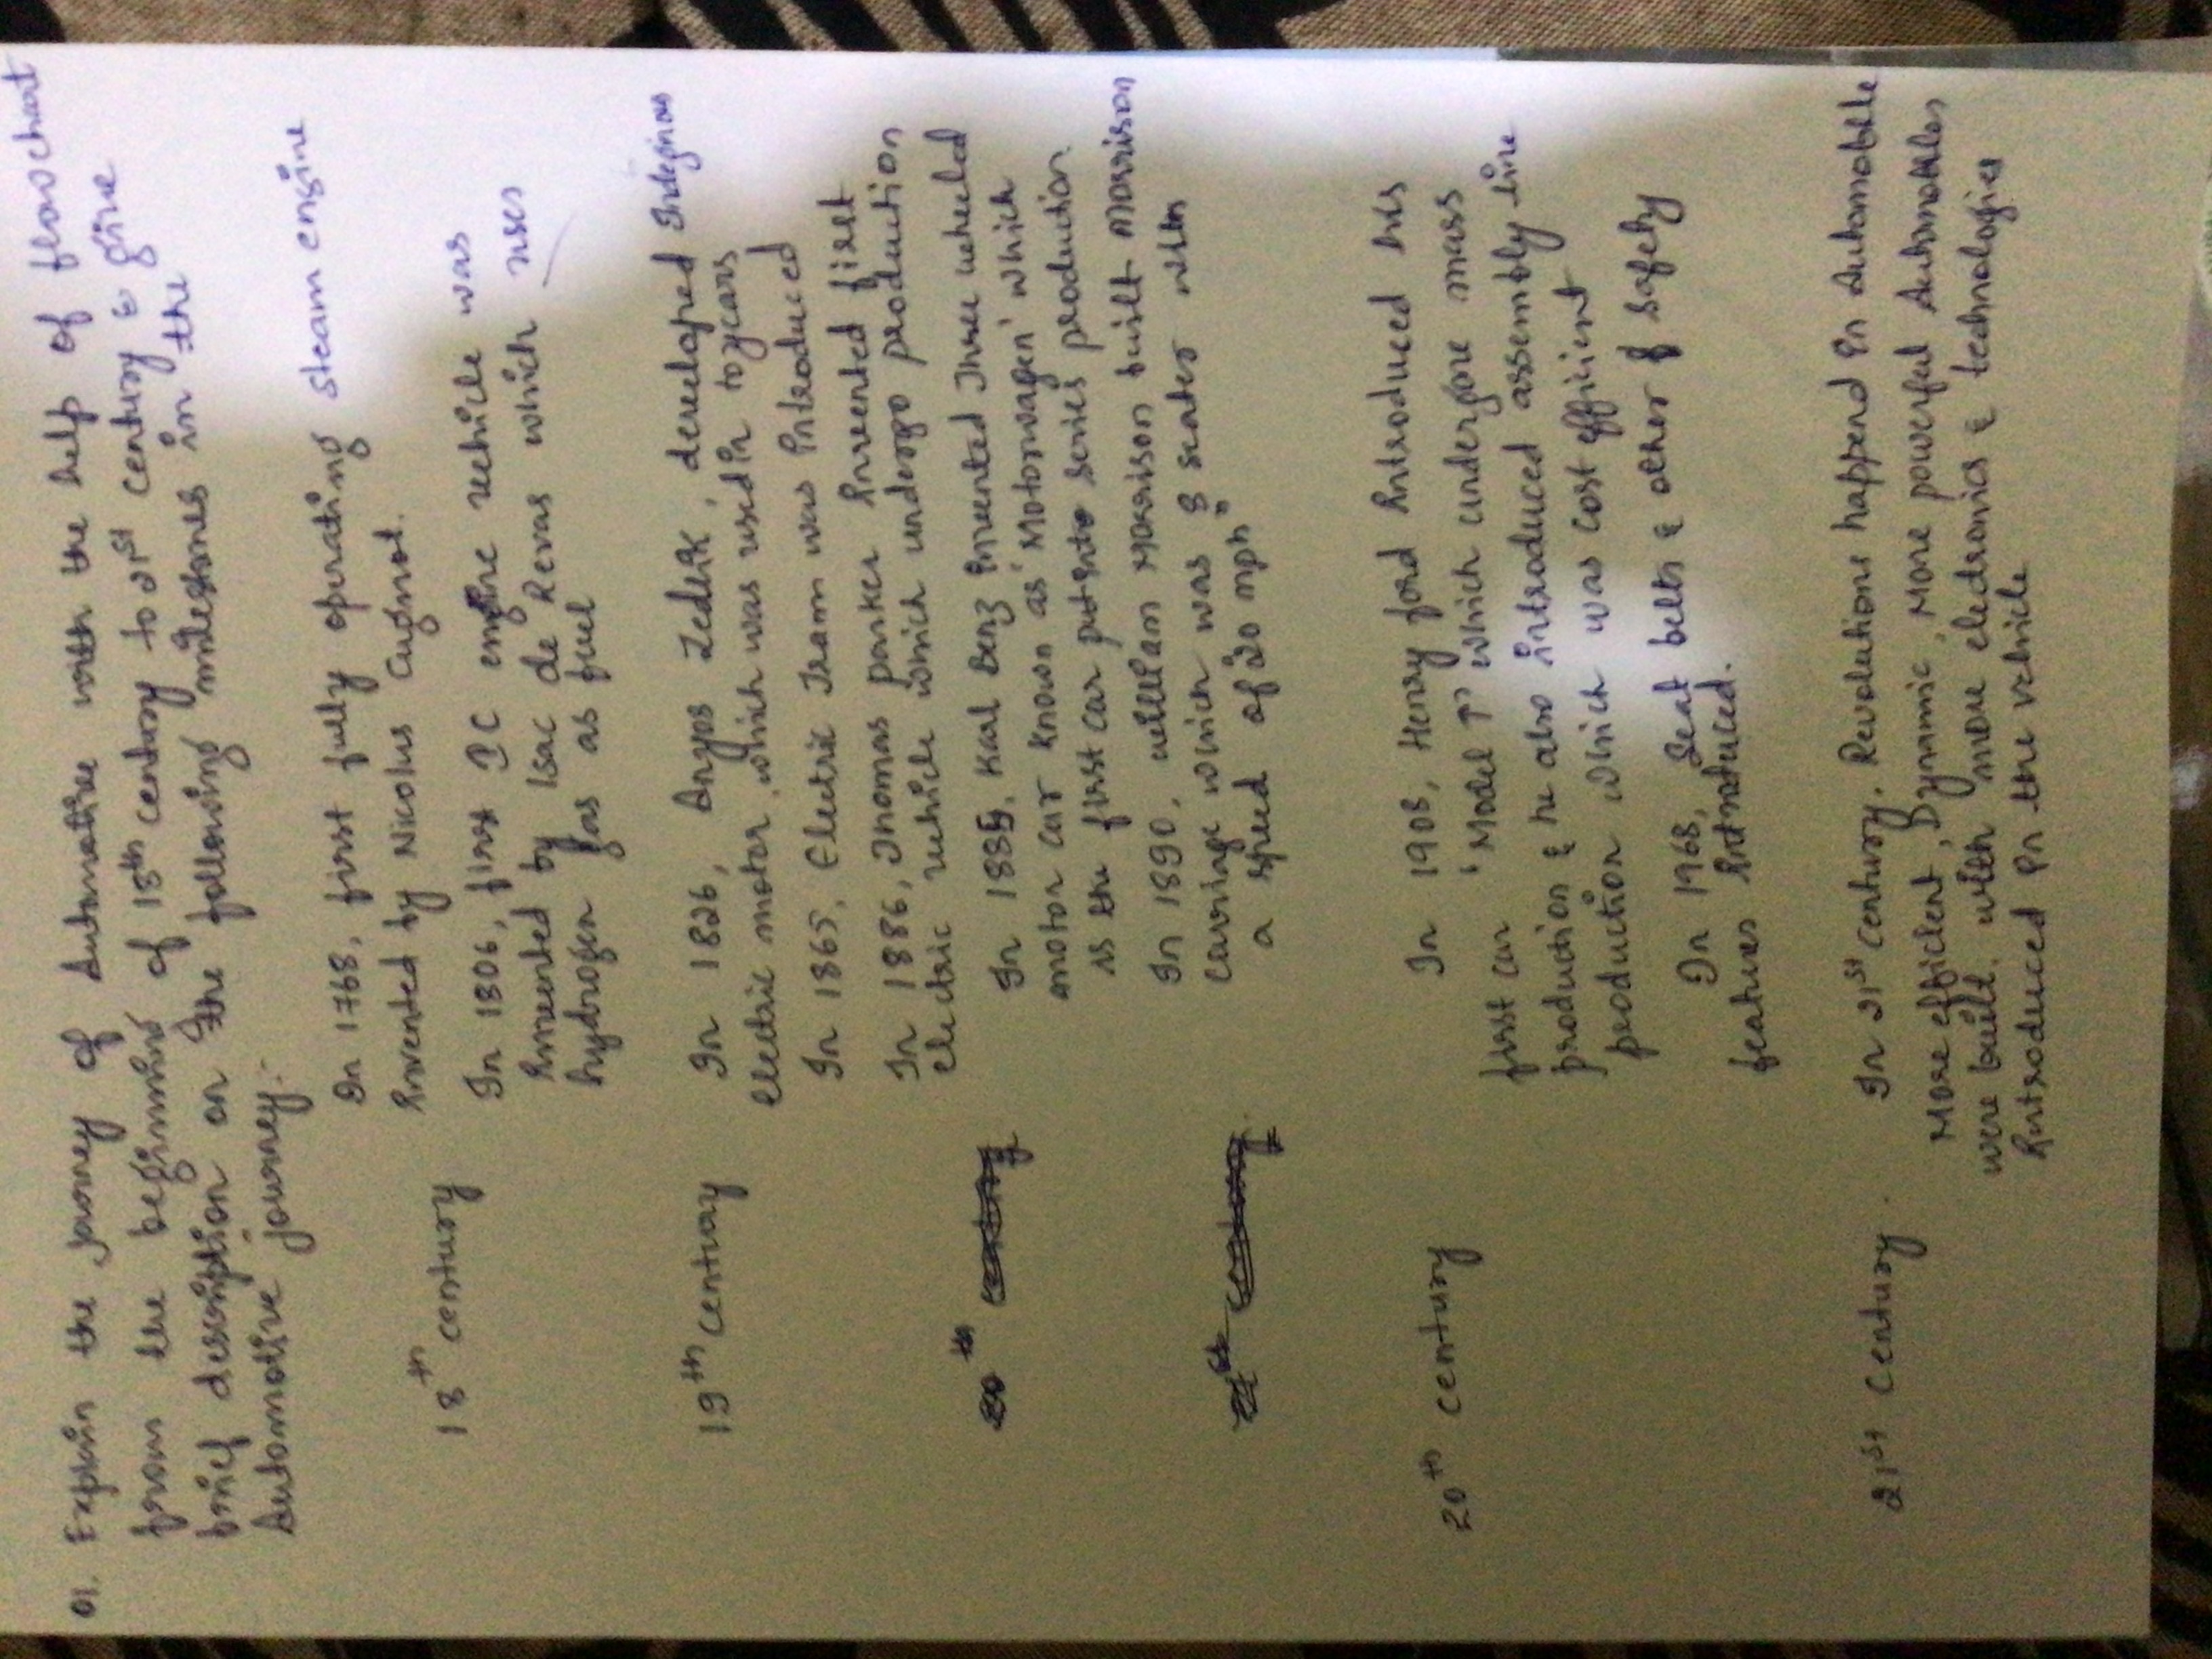 01. Explain the jouney of Automative with the help of flowchart
from the beginning of 18th century to 21st century & give
brief description on the following milestones in the
Automotive journey:-
In 1768, first fully operating steam engine
invented by Nicolus Cugnot.
18th century
In 1806, first IC engine vehicle was
invented by Isac de Revas which uses
hydrogen gas as fuel
19th century
In 1826, Anyos Jedlik, developed Indeginous
electric motor, which was used in toycars
In 1865, Electric Tram was introduced
In 1886, Thomas parker invented first
electric vehicle which undergo production
In 1885, Karl Benz invented Three wheeled
motor car known as 'Motorwagen' which
is the first car put into series production
In 1890, william Morrison built Morrison
carriage which was 8 seater with
a speed of 20 mph
20th century
In 1908, Henry ford introduced his
first car "Model T" which undergone mass
production & he also introduced assembly line
production which was cost efficient
In 1968, Seat belts & other safety
features introduced.
21st century.
In 21st century. Revolutions happend in Automobile
More efficient, Dynamic, More powerful Automobiles
were built. with more electronics & technologies
introduced in the vehicle